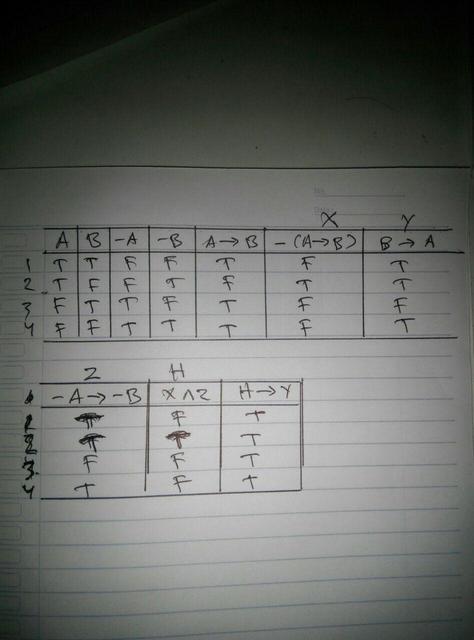 X Y
A B -A -B A → B - (A→B) B → A
1 T T F F T F T
2 T F F T F T T
3 F T T F T F F
4 F F T T T F T
Z H
-A → -B X ∧ Z H → Y
T F T
T T T
3 F F T
4 T F T